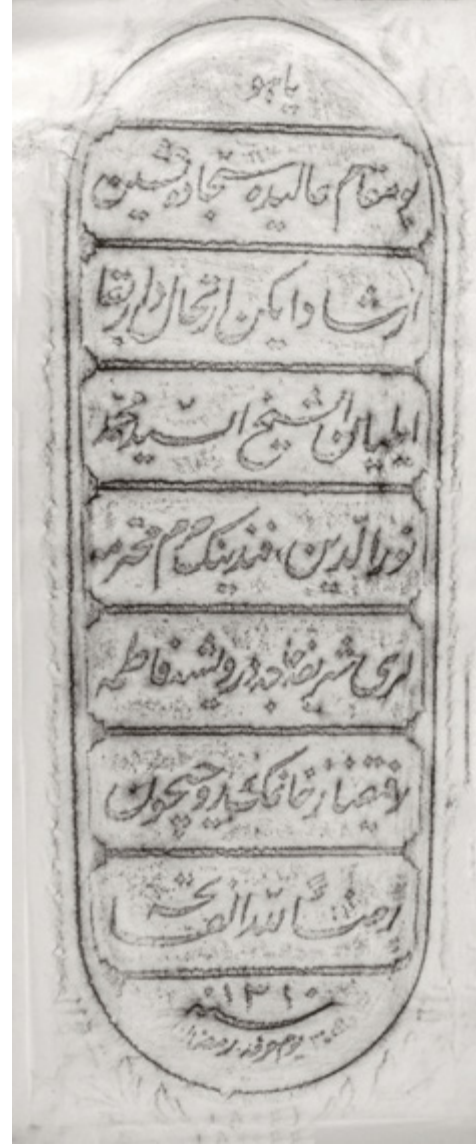 یا هو
بو مقام عالیده سجاده نشین
ارشاد ایکن ارتحال دار بقا
ایلیان الشیخ السید محمد
نورالدین افندینك حرم محترمه
لری شریفه خدیجه درویشه فاطمه
خانمك روحیچون
رضاءً لله الفاتحه
سنه ١٣١٠
یوم عرفه